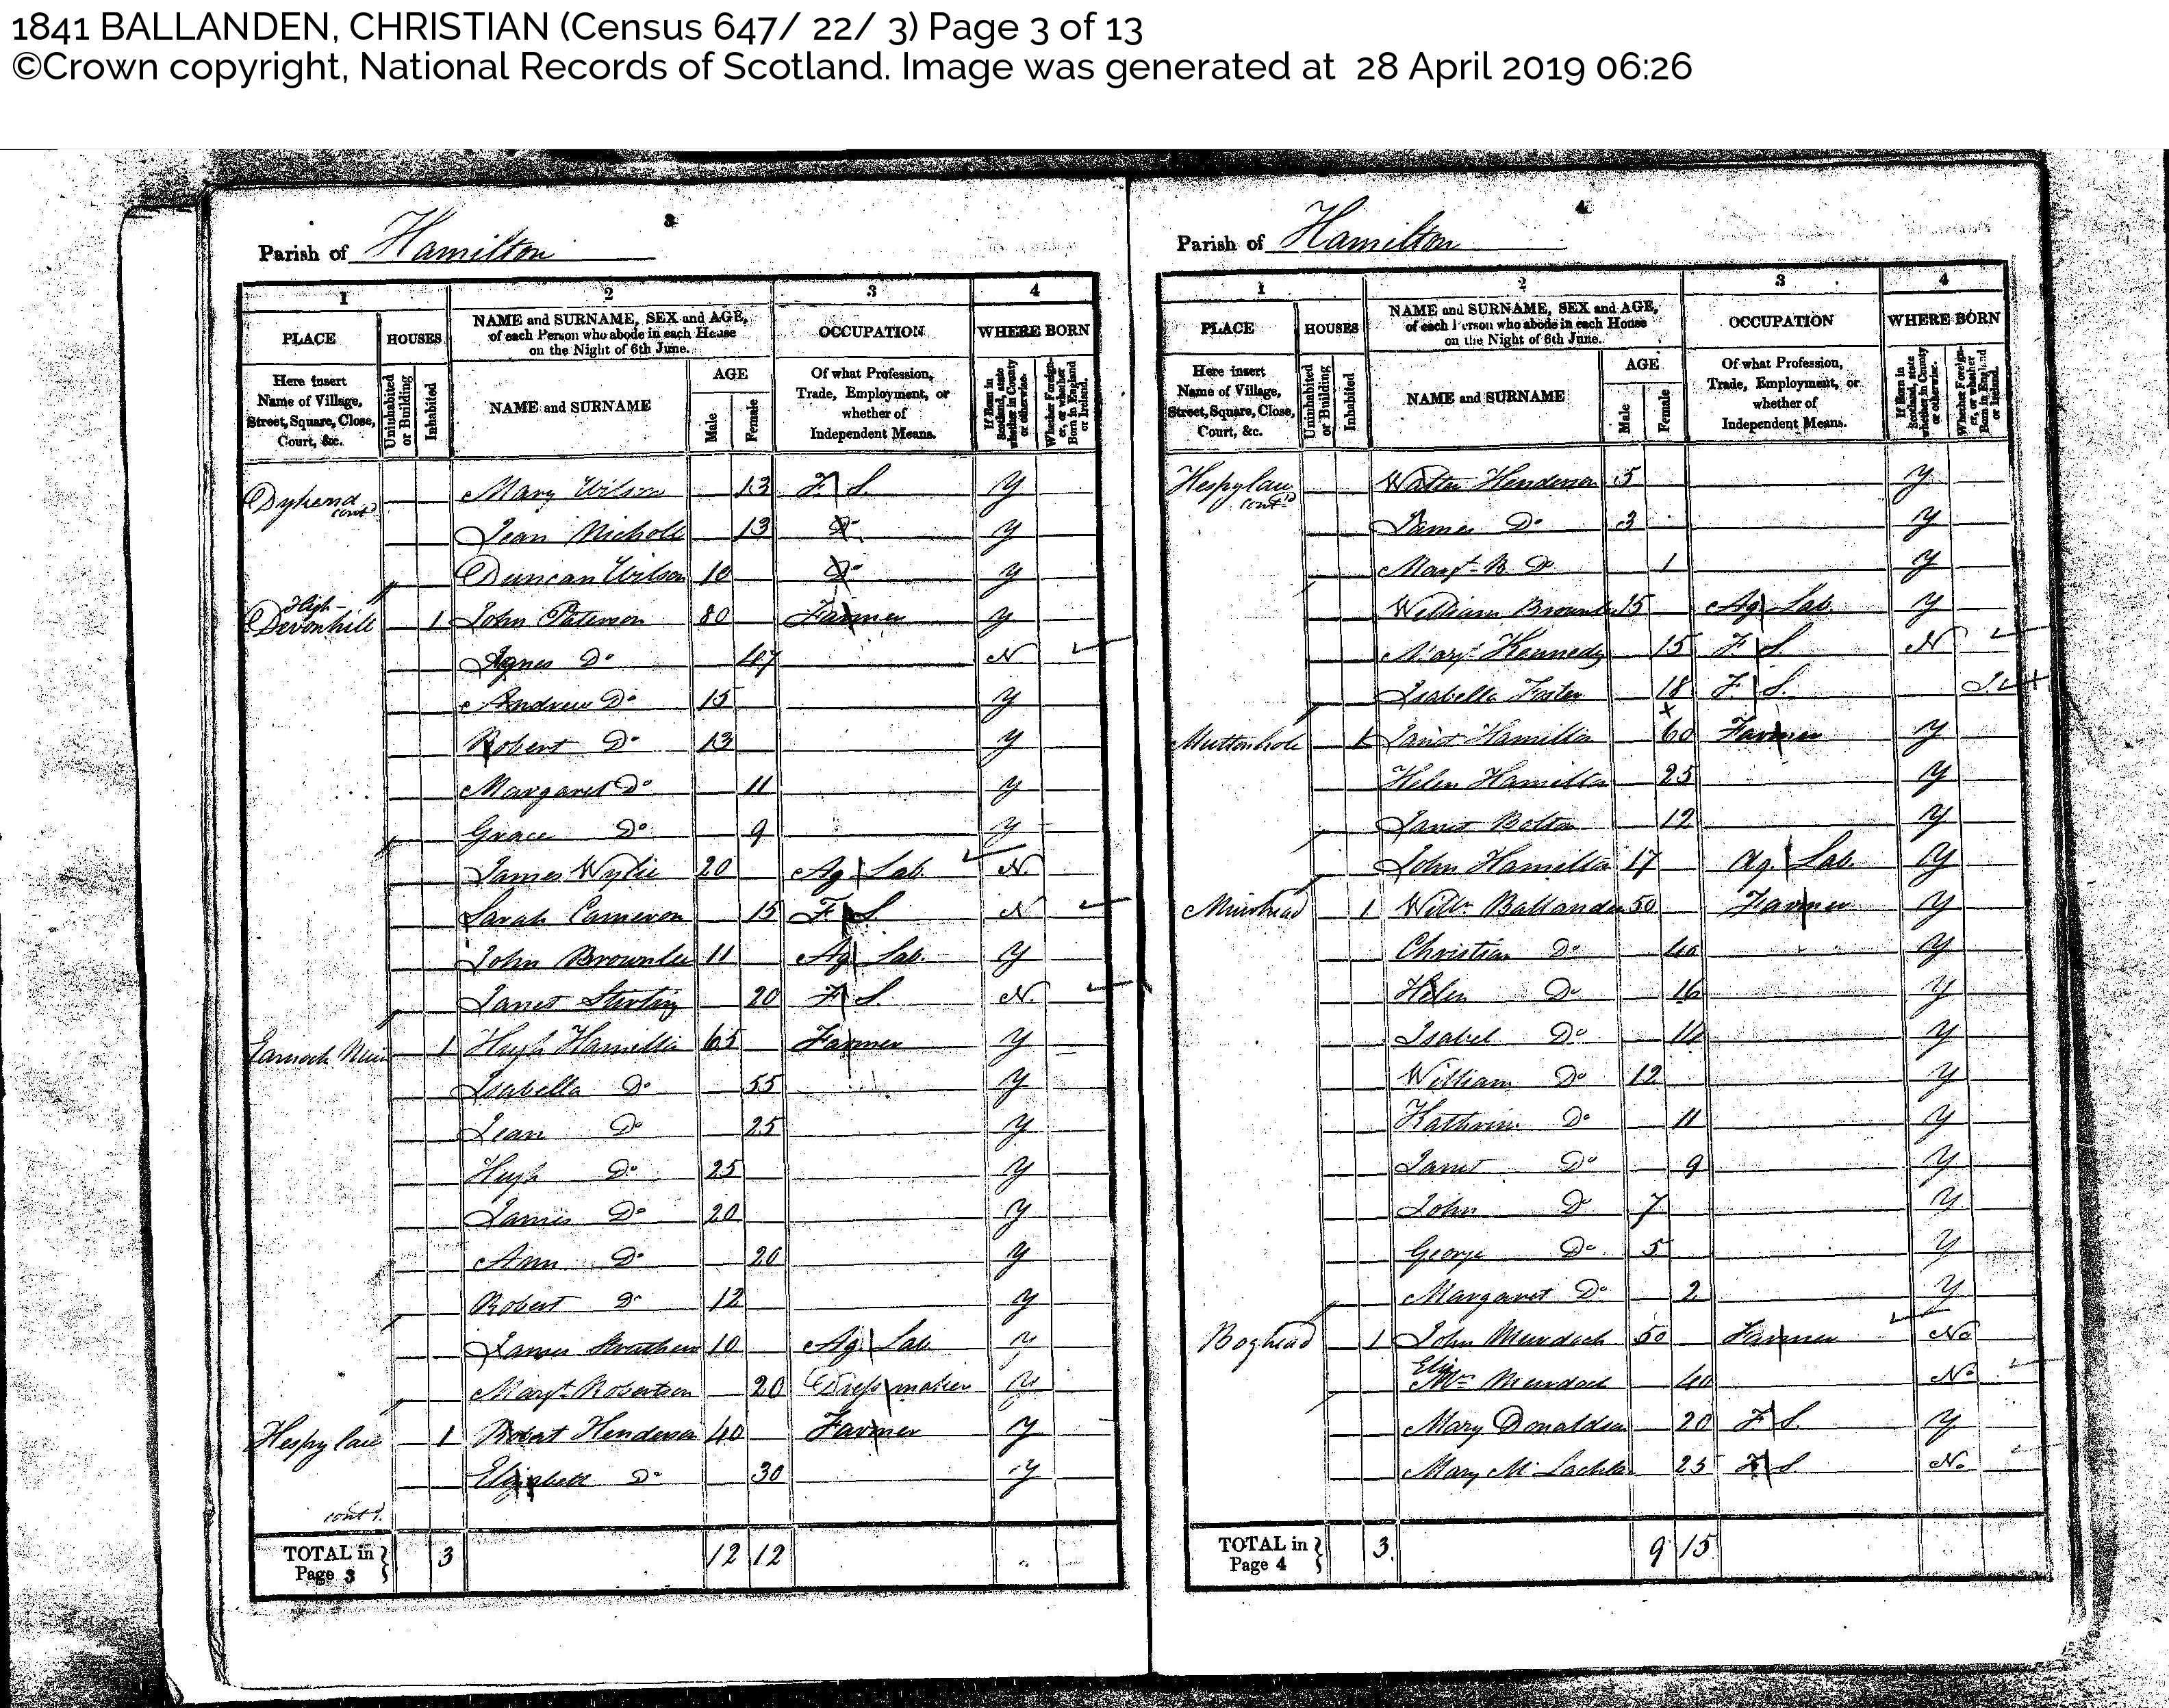 1841 BALLANDEN, CHRISTIAN (Census 647/ 22/ 3) Page 3 of 13
©Crown copyright, National Records of Scotland. Image was generated at 28 April 2019 06:26
3
Parish of Hamilton
1 2 3 4
PLACE HOUSES NAME and SURNAME, SEX and AGE, of each Person who abode in each House on the Night of 6th June. OCCUPATION WHERE BORN
Here insert Name of Village, Street, Square, Close, Court, &c. Uninhabited or Building Inhabited NAME and SURNAME AGE Male Female Of what Profession, Trade, Employment, or whether of Independent Means. If Born in Scotland, state whether in County or otherwise. Whether Foreigner, or whether Born in England or Ireland.
Dykend contd Mary Wilson 13 F. S. Y
Jean Nicholl 13 Do Y
Duncan Wilson 10 Do Y
High Devonhill 1 John Paterson 80 Farmer Y
Agnes Do 47 N
Andrew Do 15 Y
Robert Do 13 Y
Margaret Do 11 Y
Grace Do 9 Y
James Wylie 20 Ag Lab. N.
Sarah Cameron 15 F S N
John Brownlee 11 Ag Lab. Y
Janet Stirling 20 F S. N.
Muir 1 Hugh Hamilton 65 Farmer Y
Isabella Do 55 Y
Jean Do 25 Y
Hugh Do 25 Y
James Do 20 Y
Ann Do 20 Y
Robert Do 12 Y
James Strathern 10 Ag. Lab. Y
Margt Robertson 20 Dress maker Y
Hespylaw 1 Robert Henderson 40 Farmer Y
Elizabeth Do 30 Y
contd.
TOTAL in Page 3 } 3 12 12
4
Parish of Hamilton
1 2 3 4
PLACE HOUSES NAME and SURNAME, SEX and AGE, of each Person who abode in each House on the Night of 6th June. OCCUPATION WHERE BORN
Here insert Name of Village, Street, Square, Close, Court, &c. Uninhabited or Building Inhabited NAME and SURNAME AGE Male Female Of what Profession, Trade, Employment, or whether of Independent Means. If Born in Scotland, state whether in County or otherwise. Whether Foreigner, or whether Born in England or Ireland.
Hespylaw contd Walter Henderson 5 Y
James Do 3 Y
Margt B. Do 1 Y
William Brownlee 15 Ag Lab. Y
Margt Kennedy 15 F S. N
Isabella Foster 18 F S.
Muttonhole 1 Janet Hamilton 60 Farmer Y
Helen Hamilton 25 Y
Janet Bolton 12 Y
John Hamilton 17 Ag. Lab. Y
Muirhead 1 Willm Ballanden 50 Farmer Y
Christian Do 40 Y
Helen Do 16 Y
Isabel Do 14 Y
William Do 12 Y
Kathrine Do 11 Y
Janet Do 9 Y
John Do 7 Y
George Do 5 Y
Margaret Do 2 Y
Boghead 1 John Murdoch 50 Farmer No
Eliz Mrs Murdoch 40 No
Mary Donaldson 20 F S. Y
Mary McLachlan 25 F S. No
TOTAL in Page 4 } 3. 9 15